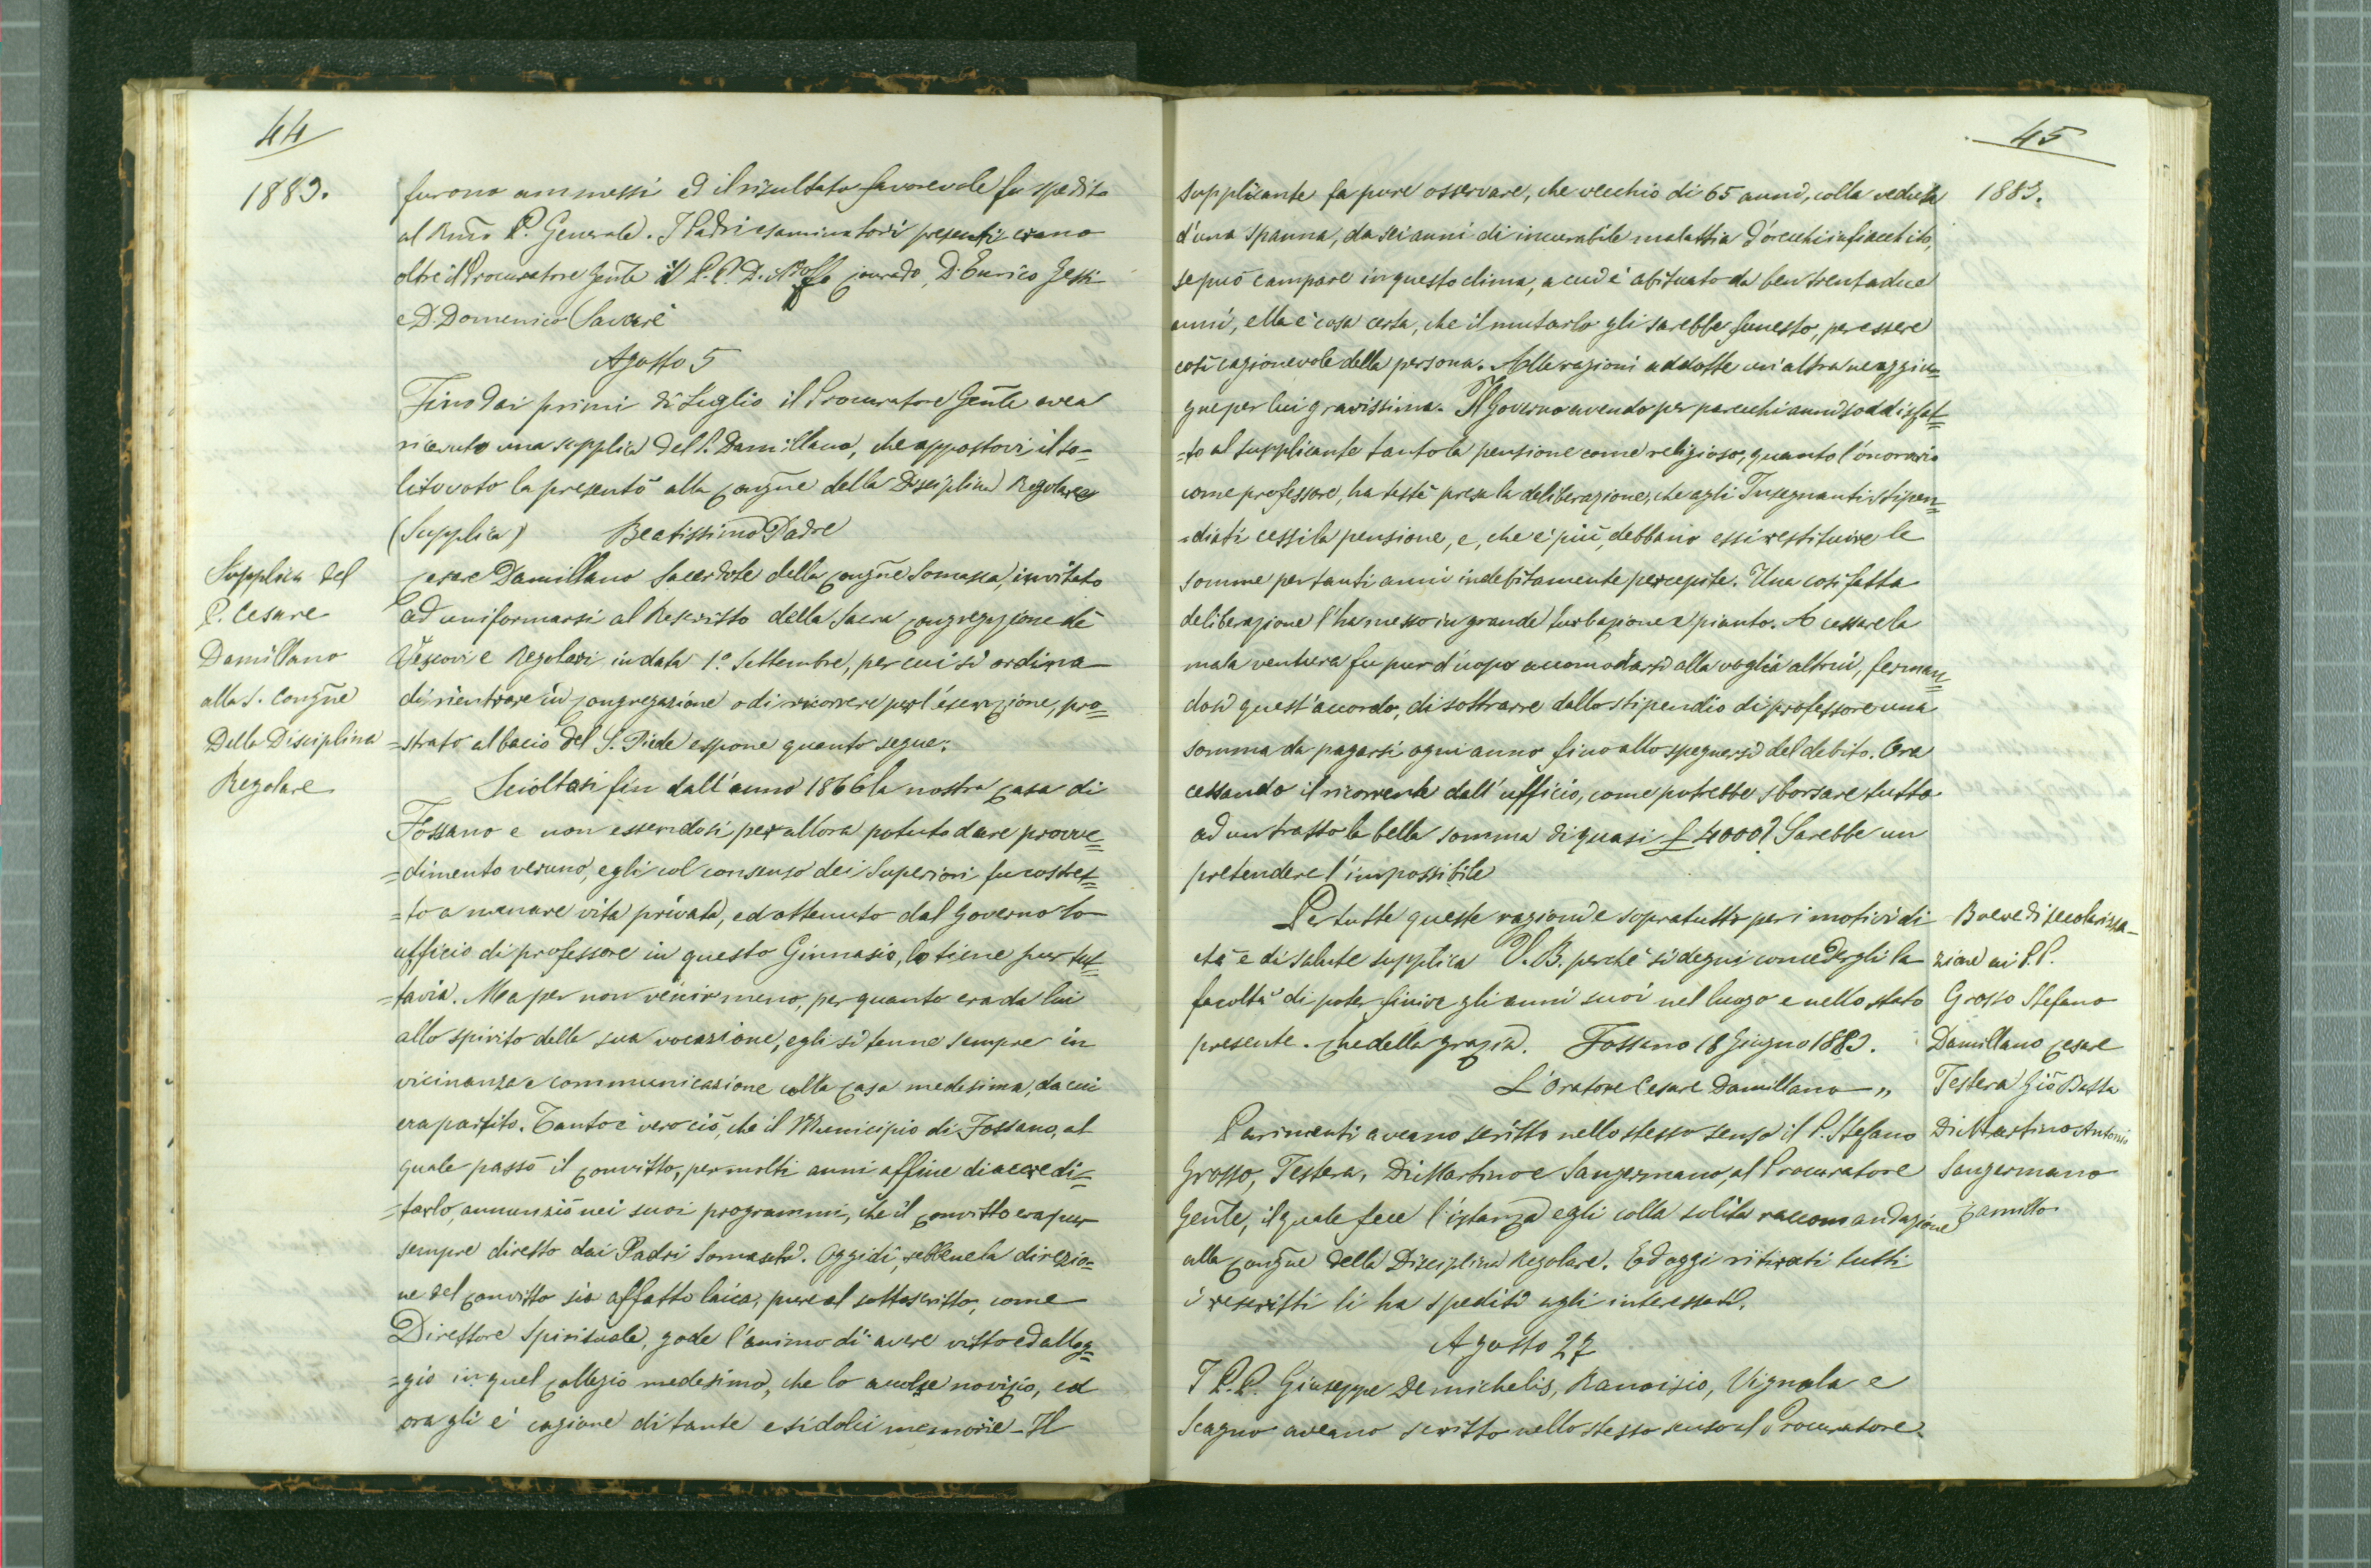 44
1883.
furono ammessi ed il risultato favorevole fu spedito
al Rmo P. Generale. I Padri esaminatori presenti erano
oltre il Procuratore Gente il P. P. D. Adolfo Conrado, D. Enrico Gessi
e D. Domenico Savarè
Agosto 5
Fino dai primi di Luglio il Procuratore Gente avea
ricevuto una supplica del P. Damillano, che appostovi il so-
lito voto la presentò alla Congne della Disciplina Regolare
(Supplica) Beatissimo Padre
Supplica del
P. Cesare
Damillano
alla S. Congne
Della Disciplina
Regolare
Cesare Damillano Sacerdote della Congne Somasca, invitato
ad uniformarsi al Rescritto della Sacra Congregazione dè
Vescovi e Regolari in data 1.º Settembre, per cui si ordina
di rientrare in Congregazione o di ricorrere per l'esenzione, pro=
=strato al bacio del S. Piede espone quanto segue:
Scioltasi fin dall'anno 1866 la nostra Casa di
Fossano e non essendosi per allora potuto dare provve=
=dimento veruno, egli col consenso dei Superiori fu costret=
=to a menare vita privata, ed ottenuto dal Governo lo
ufficio di professore in questo Ginnasio, lo tiene pur tut=
=tavia. Ma per non venir meno, per quanto era da lui
allo spirito della sua vocazione, egli si tenne sempre in
vicinanza e communicazione colla Casa medesima, da cui
era partito. Tanto è vero ciò, che il Municipio di Fossano, al
quale passò il Convitto, per molti anni affine di accredi=
=tarlo, annunziò nei suoi programmi, che il Convitto era pur
sempre diretto dai Padri Somaschi. Oggidì, sebbene la direzio=
ne del Convitto sia affatto laica, pure al sottoscritto, come
Direttore Spirituale, gode l'animo di avere vitto ed allog=
=gio in quel Collegio medesimo, che lo accolse novizio, ed
ora gli è cagione di tante e sì dolci memorie - Il
45
1883.
supplicante fa pure osservare, che vecchio di 65 anni, colla veduta
d'una spanna, da sei anni di incurabile malattia d'orecchi infiacchito,
se può campare in questo clima, a cui è abituato da ben trentadue
anni, ella è cosa certa, che il mutarlo gli sarebbe funesto, per essere
così cagionevole della persona. Alle ragioni addotte un'altra ne aggiun=
gne per lui gravissima. Il Governo avendo per parecchi anni soddisfat=
=to al supplicante tanto la pensione come religioso, quanto l'onorario
come professore, ha testè presa la deliberazione, che agli Insegnanti stipen=
=diati cessi la pensione, e, che è più, debbano essi restituire le
somme per tanti anni indebitamente percepite. Una così fatta
deliberazione l'ha messo in grande turbazione e pianto. A cessare la
mala ventura fu pur d'uopo accomodarsi alla voglia altrui, ferman=
dosi quest'accordo, di sottrarre dallo stipendio di professore una
somma da pagarsi ogni anno fino allo spegnersi del debito. Ora
cessando il ricorrente dall'ufficio, come potrebbe sborsare tutta
ad un tratto la bella somma di quasi £ 4000? Sarebbe un
pretendere l'impossibile
Per tutte queste ragioni e sopratutto per i motivi di
età e di salute supplica V. B. perchè si degni concedergli la
facoltà di poter finire gli anni suoi nel luogo e nello stato
presente. Che della grazia. Fossano 18 Giugno 1883.
L'Oratore Cesare Damillano „
Breve di secolarizza-
zione ai P.P.
Grosso Stefano
Damillano Cesare
Testera Gio Batta
Di Martino Antonio
Sangermano
Camillo
Parimenti aveano scritto nello stesso senso il P. Stefano
Grosso, Testera, Di Martino e Sangermano, al Procuratore
Gente, il quale fece l'istanza egli colla solita raccomandazione
alla Congne della Disciplina Regolare. Ed oggi ritirati tutti
i rescritti li ha spediti agli interessati.
Agosto 27
I P.P. Giuseppe Demichelis, Ranoisio, Vignola e
Scagno aveano scritto nello stesso senso al Procuratore